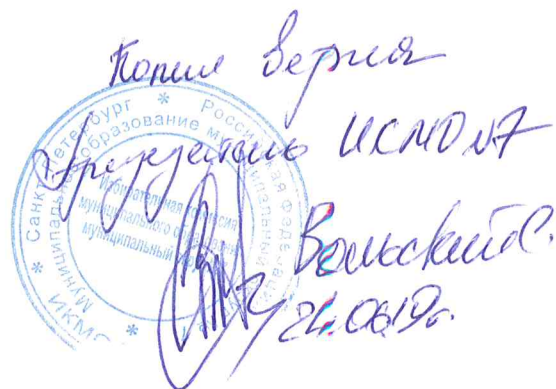 Копия верна
Председатель ИКМО №7
Вольский С.
* Санкт-Петербург * Российская Федерация
Муниципальное образование муниципальный
Избирательная комиссия
муниципального образования
муниципальный
ИКМО